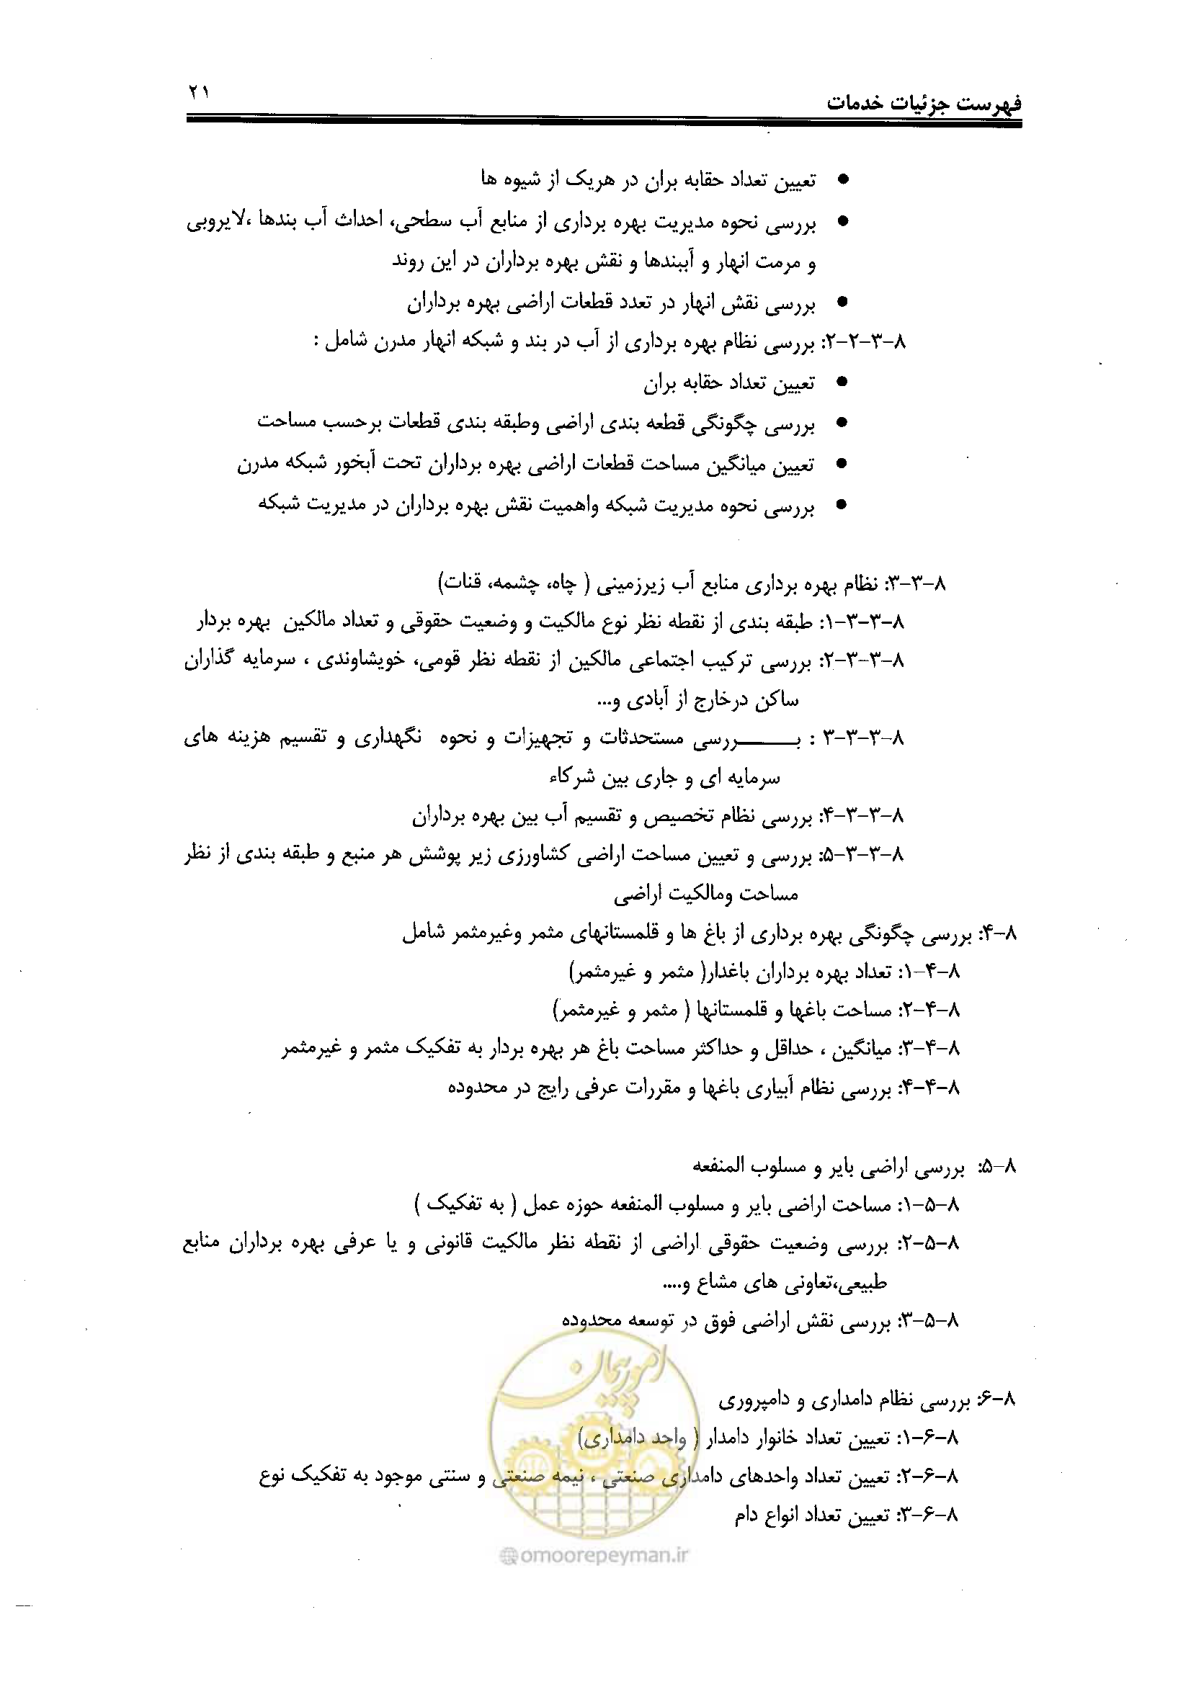 فهرست جزئیات خدمات
۲۱
● تعیین تعداد حقابه بران در هریک از شیوه ها
● بررسی نحوه مدیریت بهره برداری از منابع آب سطحی، احداث آب بندها ،لایروبی
و مرمت انهار و آببندها و نقش بهره برداران در این روند
● بررسی نقش انهار در تعدد قطعات اراضی بهره برداران
۸-۳-۲-۲: بررسی نظام بهره برداری از آب در بند و شبکه انهار مدرن شامل :
● تعیین تعداد حقابه بران
● بررسی چگونگی قطعه بندی اراضی وطبقه بندی قطعات برحسب مساحت
● تعیین میانگین مساحت قطعات اراضی بهره برداران تحت آبخور شبکه مدرن
● بررسی نحوه مدیریت شبکه واهمیت نقش بهره برداران در مدیریت شبکه
۸-۳-۳: نظام بهره برداری منابع آب زیرزمینی ( چاه، چشمه، قنات)
۸-۳-۳-۱: طبقه بندی از نقطه نظر نوع مالکیت و وضعیت حقوقی و تعداد مالکین بهره بردار
۸-۳-۳-۲: بررسی ترکیب اجتماعی مالکین از نقطه نظر قومی، خویشاوندی ، سرمایه گذاران
ساکن درخارج از آبادی و...
۸-۳-۳-۳ : بــــــررسی مستحدثات و تجهیزات و نحوه نگهداری و تقسیم هزینه های
سرمایه ای و جاری بین شرکاء
۸-۳-۳-۴: بررسی نظام تخصیص و تقسیم آب بین بهره برداران
۸-۳-۳-۵: بررسی و تعیین مساحت اراضی کشاورزی زیر پوشش هر منبع و طبقه بندی از نظر
مساحت ومالکیت اراضی
۸-۴: بررسی چگونگی بهره برداری از باغ ها و قلمستانهای مثمر وغیرمثمر شامل
۸-۴-۱: تعداد بهره برداران باغدار( مثمر و غیرمثمر)
۸-۴-۲: مساحت باغها و قلمستانها ( مثمر و غیرمثمر)
۸-۴-۳: میانگین ، حداقل و حداکثر مساحت باغ هر بهره بردار به تفکیک مثمر و غیرمثمر
۸-۴-۴: بررسی نظام آبیاری باغها و مقررات عرفی رایج در محدوده
۸-۵: بررسی اراضی بایر و مسلوب المنفعه
۸-۵-۱: مساحت اراضی بایر و مسلوب المنفعه حوزه عمل ( به تفکیک )
۸-۵-۲: بررسی وضعیت حقوقی اراضی از نقطه نظر مالکیت قانونی و یا عرفی بهره برداران منابع
طبیعی،تعاونی های مشاع و....
۸-۵-۳: بررسی نقش اراضی فوق در توسعه محدوده
امور پیمان
۸-۶: بررسی نظام دامداری و دامپروری
۸-۶-۱: تعیین تعداد خانوار دامدار ( واحد دامداری)
۸-۶-۲: تعیین تعداد واحدهای دامداری صنعتی ، نیمه صنعتی و سنتی موجود به تفکیک نوع
۸-۶-۳: تعیین تعداد انواع دام
@omoorepeyman.ir